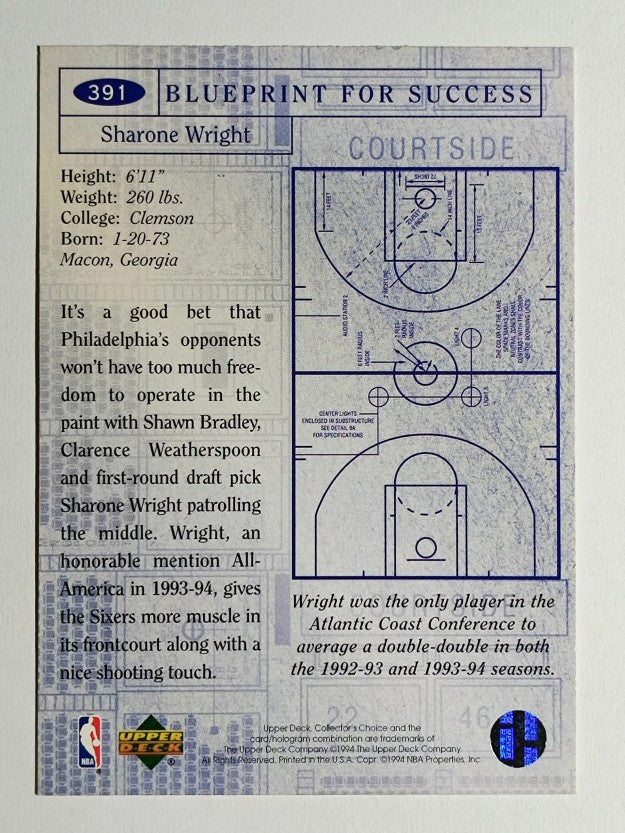 391 BLUEPRINT FOR SUCCESS
Sharone Wright
COURTSIDE
Height: 6'11"
Weight: 260 lbs.
College: Clemson
Born: 1-20-73
Macon, Georgia
It's a good bet that
Philadelphia's opponents
won't have too much free-
dom to operate in the
paint with Shawn Bradley,
Clarence Weatherspoon
and first-round draft pick
Sharone Wright patrolling
the middle. Wright, an
honorable mention All-
America in 1993-94, gives
the Sixers more muscle in
its frontcourt along with a
nice shooting touch.
14 FEET
15 FEET
2 INCH LINE
AUDIO STATION 2
6 FEET RADIUS
INSIDE
2 FEET
RADIUS
INSIDE
LIGHT 4
LIGHT 3
THE COLOR OF THE LANE
SPACE MARKS AND
NEUTRAL ZONES SHALL
CONTRAST WITH THE COLOR
OF THE BOUNDING LINES
CENTER LIGHTS
ENCLOSED IN SUBSTRUCTURE
SEE DETAIL 9A
FOR SPECIFICATIONS
Wright was the only player in the
Atlantic Coast Conference to
average a double-double in both
the 1992-93 and 1993-94 seasons.
22
46
NBA
UPPER
DECK
Upper Deck, Collector's Choice and the
card/hologram combination are trademarks of
The Upper Deck Company ©1994 The Upper Deck Company.
All Rights Reserved. Printed in the U.S.A. Copr. ©1994 NBA Properties, Inc.